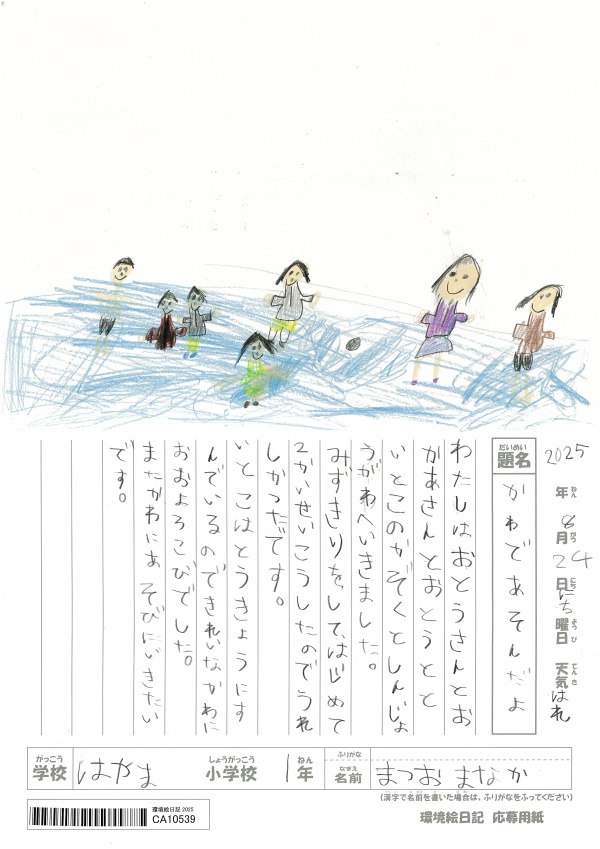 2025年ねん8月がつ24日にちにち曜日ようび天気てんきはれ
題名だいめい かわであそんだよ
わたしはおとうさんとお
かあさんとおとうとと
いとこのかぞくとしんじょ
うがわへいきました。
みずきりをして、はじめて
2かいせいこうしたのでうれ
しかっだてす。
いとこはとうきょうにす
んでいるのできれいなかわに
おおよろこびでした。
またかわにあそびにいきたい
です。
学校がっこう はやま 小学校しょうがっこう 1年ねん 名前なまえ ふりがな まつお まなか
(漢字で名前を書いた場合は、ふりがなをふってください)
環境絵日記 2025
CA10539
環境絵日記 応募用紙